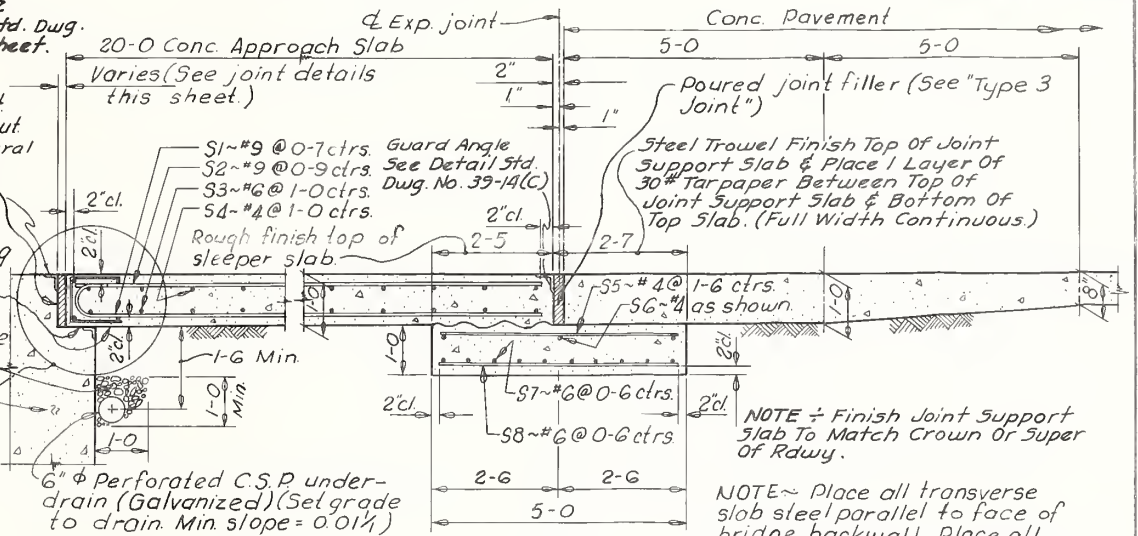 td. Dwg.
heet.
℄ Exp. joint
Conc. Pavement
20-0 Conc. Approach Slab
5-0
5-0
Varies (See joint details
this sheet.)
2"
1"
1"
Poured joint filler (See "Type 3
Joint")
ut
ral
S1~#9 @ 0-7 ctrs.
S2~#9 @ 0-9 ctrs.
S3~#6 @ 1-0 ctrs.
S4~#4 @ 1-0 ctrs.
Guard Angle
See Detail Std.
Dwg. No. 39-14(C)
Steel Trowel Finish Top Of Joint
Support Slab & Place 1 Layer Of
30# Tarpaper Between Top Of
Joint Support Slab & Bottom Of
Top Slab. (Full Width Continuous.)
2"cl.
2"cl.
Rough finish top of
sleeper slab.
2-5
2-7
2"cl.
S5~#4 @ 1-6 ctrs.
S6~#4 as shown.
1-0
1-0
8"
2"cl.
1-6 Min.
1-0
2"cl.
1-0
Min.
S7~#6 @ 0-6 ctrs.
2"cl.
2"cl.
S8~#6 @ 0-6 ctrs.
1-0
NOTE ÷ Finish Joint Support
Slab To Match Crown Or Super
Of Rdwy.
6" ϕ Perforated C.S.P. under-
drain (Galvanized) (Set grade
to drain. Min. slope = 0.01/1)
2-6
2-6
5-0
NOTE~ Place all transverse
slab steel parallel to face of
bridge backwall. Place all